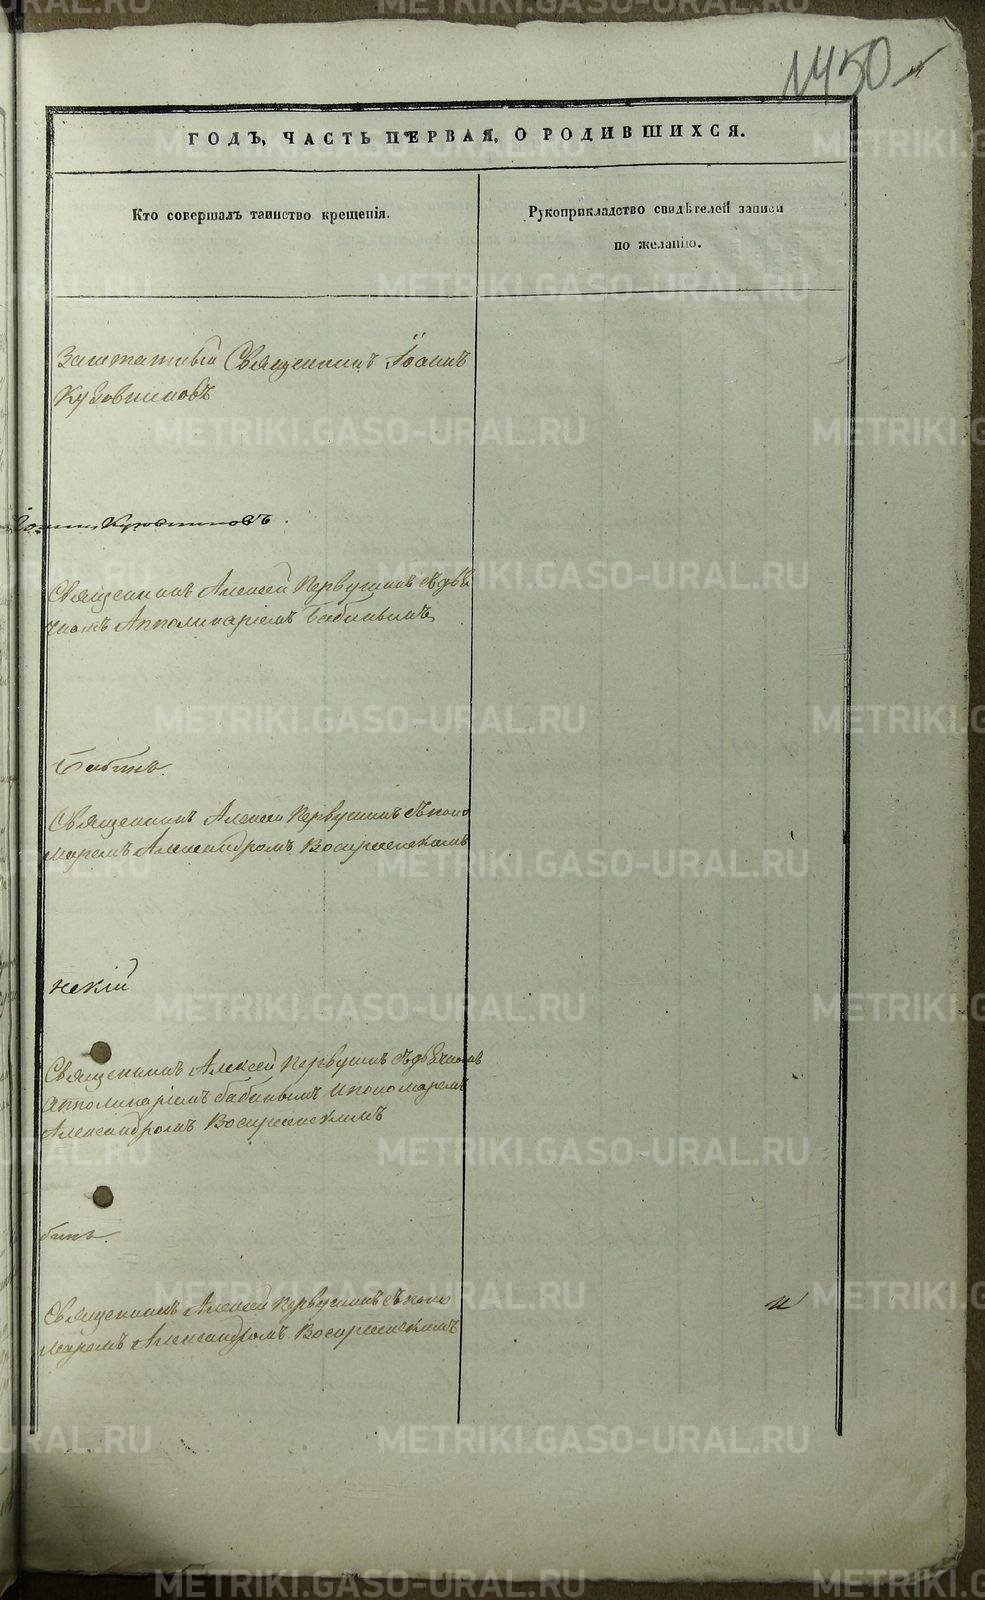 1450
ГОДЪ, ЧАСТЬ ПЕРВАЯ, О РОДИВШИХСЯ.
Кто совершалъ таинство крещенія.
Рукоприкладство свидѣтелей записи
по желанію.
Заштатный Священникъ Іоаннъ
Кузовниковъ
Священникъ Алексей Первушинъ съ дья
чкомъ Апполинаріемъ Бабинымъ
Священникъ Алексей Первушинъ съ поно
маремъ Александромъ Воскресенскимъ
нскій
Священникъ Алексей Первушинъ съ дьячкомъ
Апполинаріемъ Бабинымъ и пономаремъ
Александромъ Воскресенскимъ
Священникъ Алексей Первушинъ съ поно
маремъ Александромъ Воскресенскимъ
METRIKI.GASO-URAL.RU